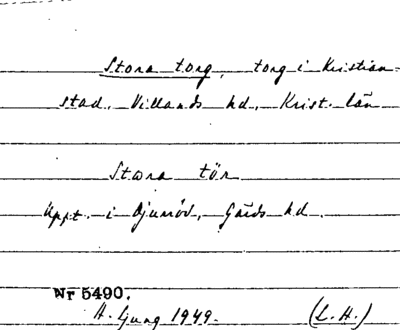 Stora torg, torg i Kristian-
stad, Villands hd, Krist. län
Stora tör
Uppt. i Djurröd, Gärds hd.
Nr 5490.
H. Ljung 1949. (L. H.)